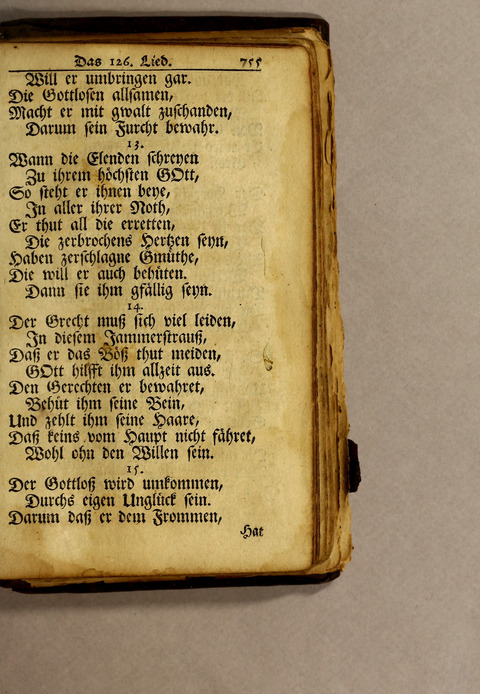 Das 126. Lied. 755
Will er umbringen gar.
Die Gottlosen allsamen,
Macht er mit gwalt zuschanden,
Darum sein Furcht bewahr.
13.
Wann die Elenden schreyen
Zu ihrem höchsten GOtt,
So steht er ihnen beye,
In aller ihrer Noth,
Er thut all die erretten,
Die zerbrochens Hertzen seyn,
Haben zerschlagne Gmüthe,
Die will er auch behüten.
Dann sie ihm gfällig seyn.
14.
Der Grecht muß sich viel leiden,
In diesem Jammerstrauß,
Daß er das Böß thut meiden,
GOtt hilfft ihm allzeit aus.
Den Gerechten er bewahret,
Behüt ihm seine Bein,
Und zehlt ihm seine Haare,
Daß keins vom Haupt nicht fähret,
Wohl ohn den Willen sein.
15.
Der Gottloß wird umkommen,
Durchs eigen Unglück sein.
Darum daß er dem Frommen,
Hat